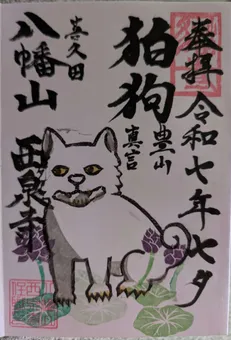 奉拝 令和七年七夕
狛狗
豊山
真言
喜久田
八幡山 西泉寺